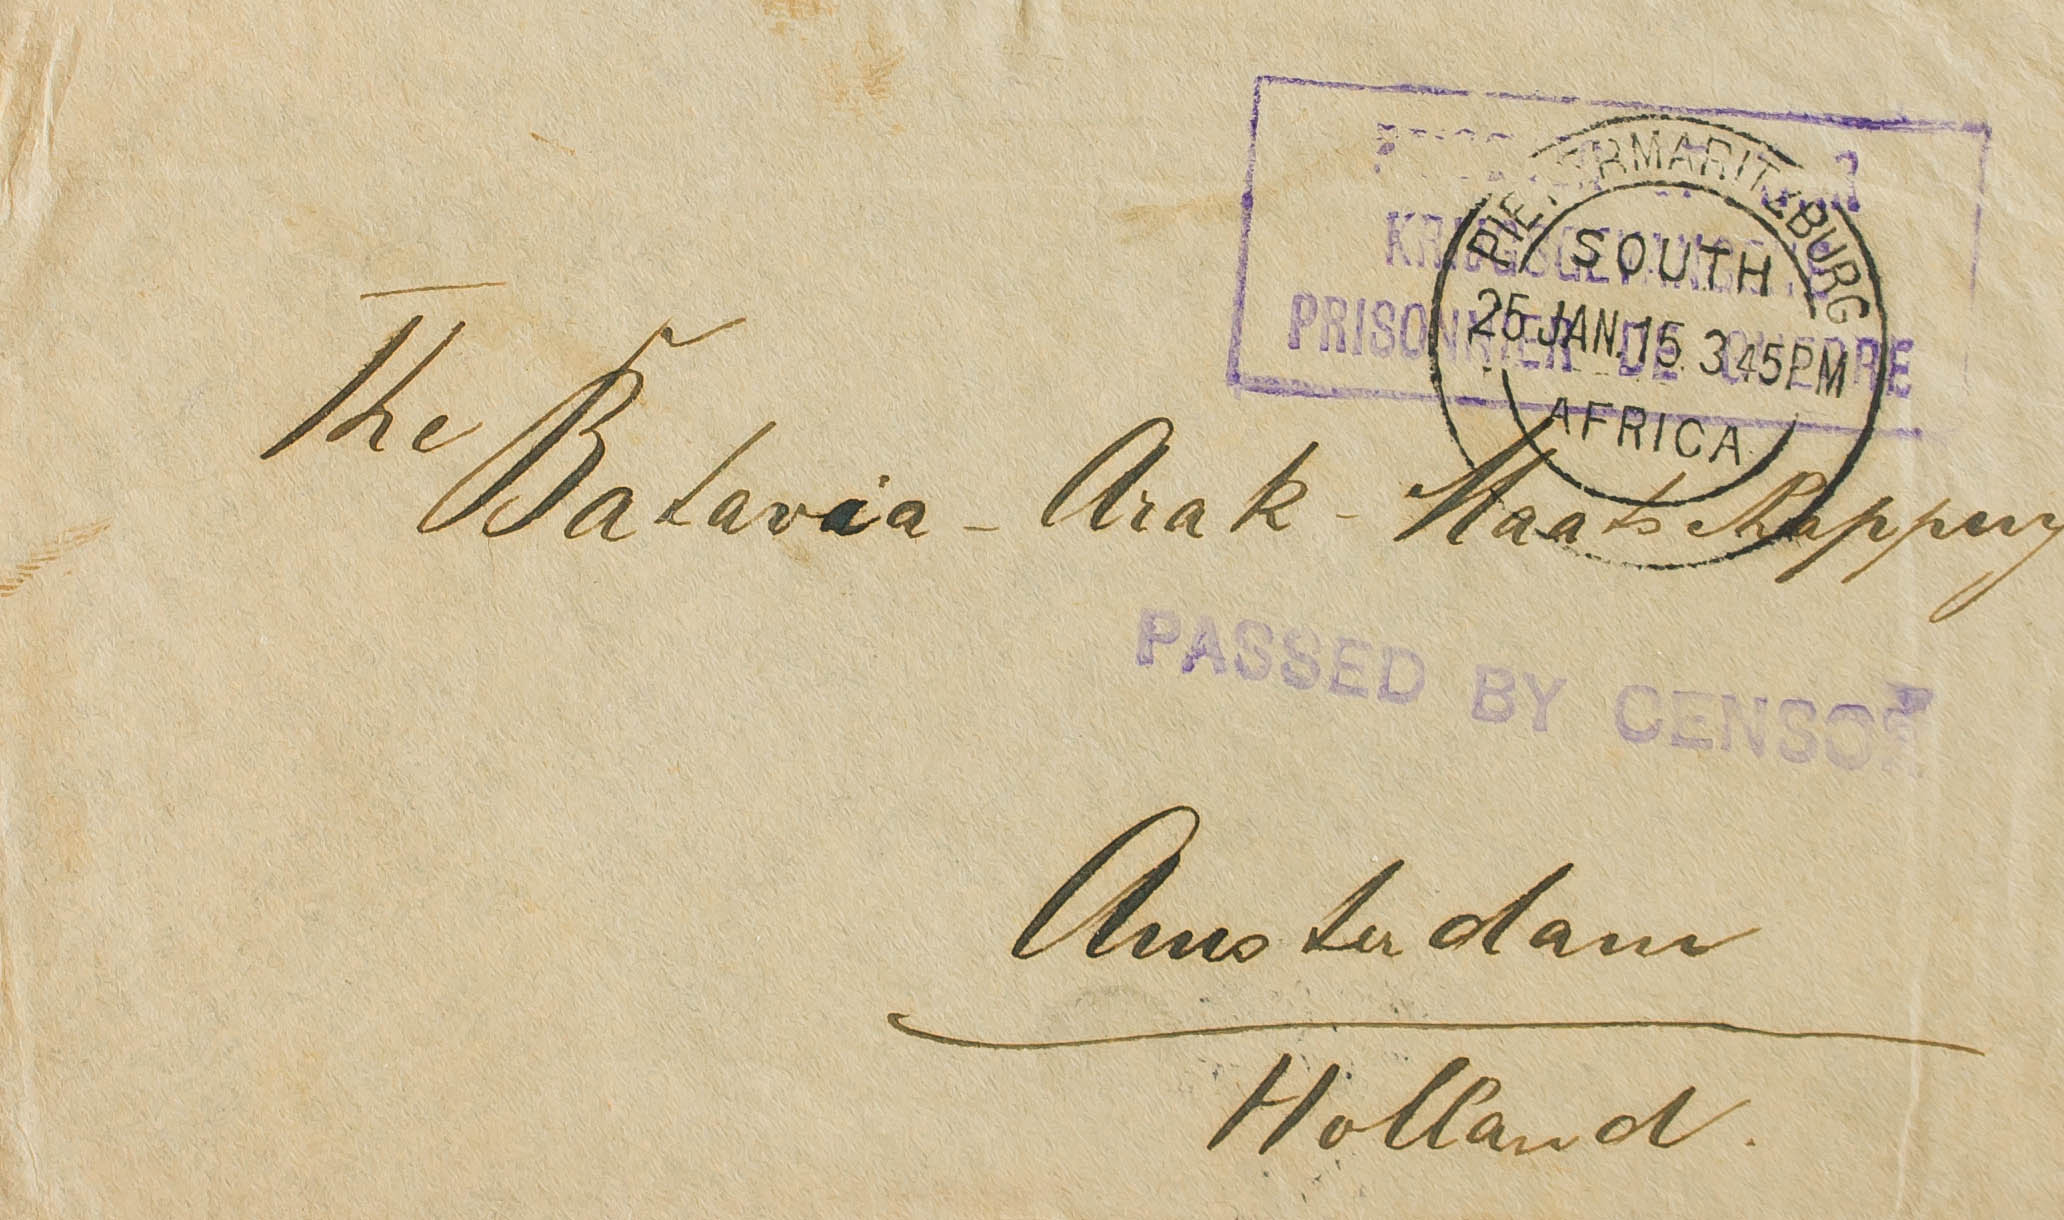 PRISONER OF WAR
KRIJGSGEVANGENE
PRISONNIER DE GUERRE
PIETERMARITZBURG
SOUTH
25 JAN. 15. 3 45 PM
AFRICA
The
Batavia - Arak - Maatschappy
PASSED BY CENSOR
Amsterdam
Holland.